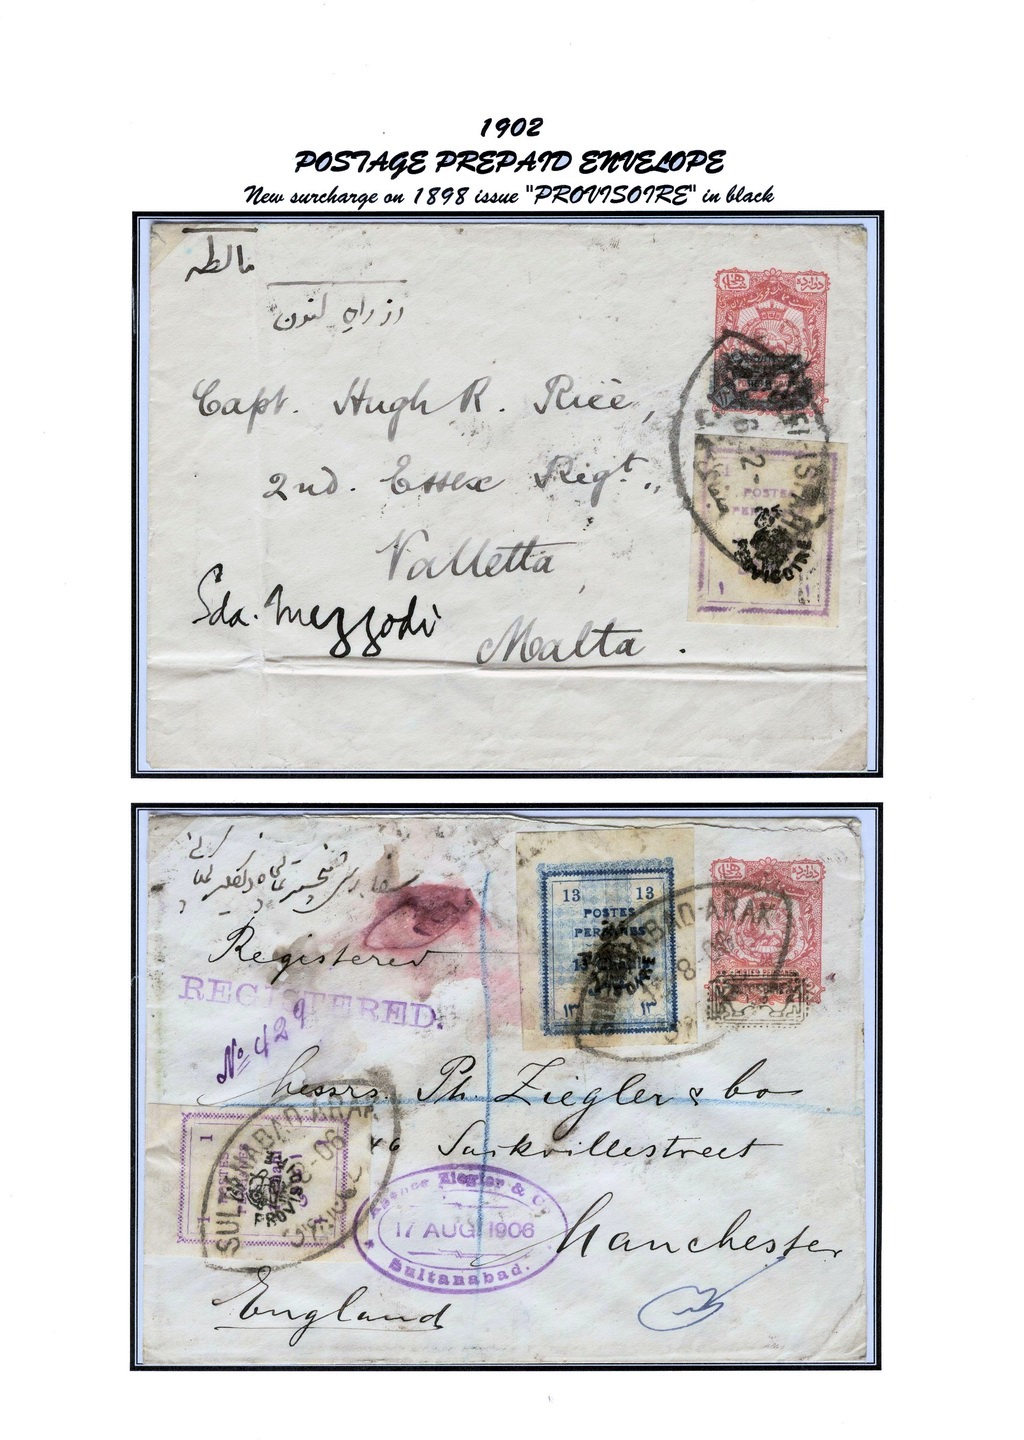 1902
POSTAGE PREPAID ENVELOPE
New surcharge on 1898 issue "PROVISOIRE" in black
مالطه
از راه لندن
Capt. Hugh R. Rice,
2nd. Essex Regt.,
Valletta,
Sda. Mezzodi
Malta.
POSTES
PROVISOIRE
1 1
Registered
REGISTERED.
No 429
13 13
POSTES
PERSANES
۱۳ ۱۳
SULTANABAD-ARAK
Messrs. Ph. Ziegler & Co
Sackvillestreet
1
SULTANABAD-ARAK
PROVISOIRE
Agence Ziegler & Co
17 AUG 1906
Sultanabad.
Manchester
England